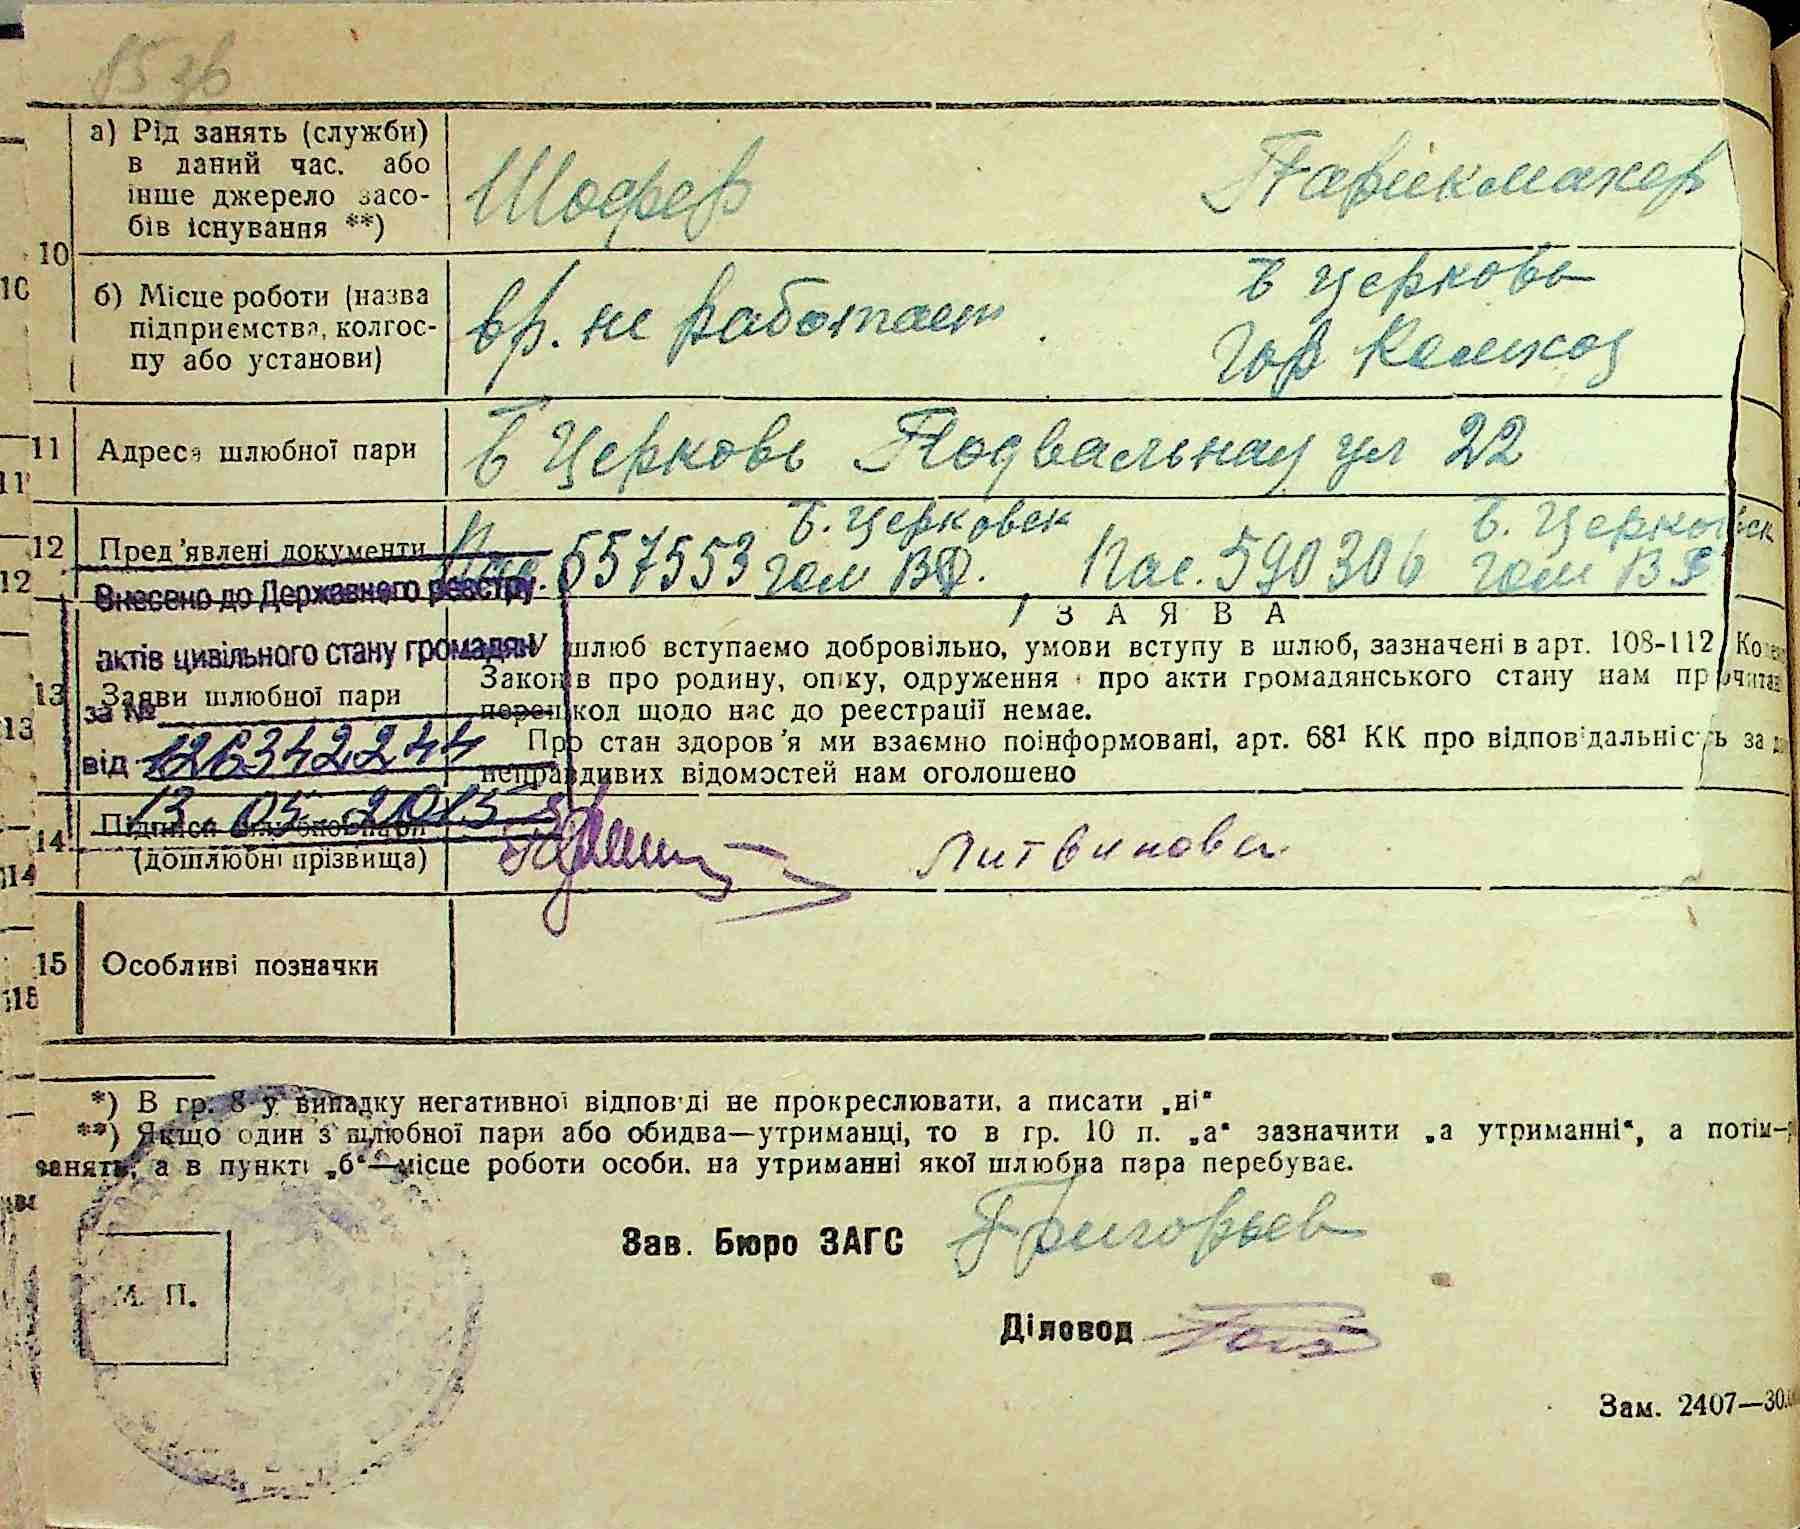 а) Рід занять (служби)
в даний час. або
інше джерело засо-
бів існування **)
Шофер
Парикмахер
10
10
б) Місце роботи (назва
підприємства, колгос-
пу або установи)
вр. не работает
Б Церковь
Гор Комхоз
11
11
Адреса шлюбної пари
Б Церковь Подвальная ул 22
12
12
Пред'явлені документи
Пас. 557553 Б. Церковск
гом ВФ.
Пас. 590306 Б. Церковск
гом ВФ
Внесено до Державного реєстру
актів цивільного стану громадян
за №
126342244
від
13.05.2015
ЗАЯВА
13
13
Заяви шлюбної пари
У шлюб вступаємо добровільно, умови вступу в шлюб, зазначені в арт. 108-112
Законів про родину, опіку, одруження про акти громадянського стану нам прочитан
перешкод щодо нас до реєстрації немає.
Про стан здоров'я ми взаємно поінформовані, арт. 68¹ КК про відповідальність за
неправдивих відомостей нам оголошено
14
14
Підписи шлюбної пари
(дошлюбні прізвища)
Литвинова
15
15
Особливі позначки
*) В гр. 8 у випадку негативної відповіді не прокреслювати, а писати „ні“
**) Якщо один з шлюбної пари або обидва—утриманці, то в гр. 10 п. „а“ зазначити „а утриманні“, а потім—
занять, а в пункті „б“—місце роботи особи, на утриманні якої шлюбна пара перебуває.
Зав. Бюро ЗАГС
Григорьев
М. П.
Діловод
Зам. 2407—30.